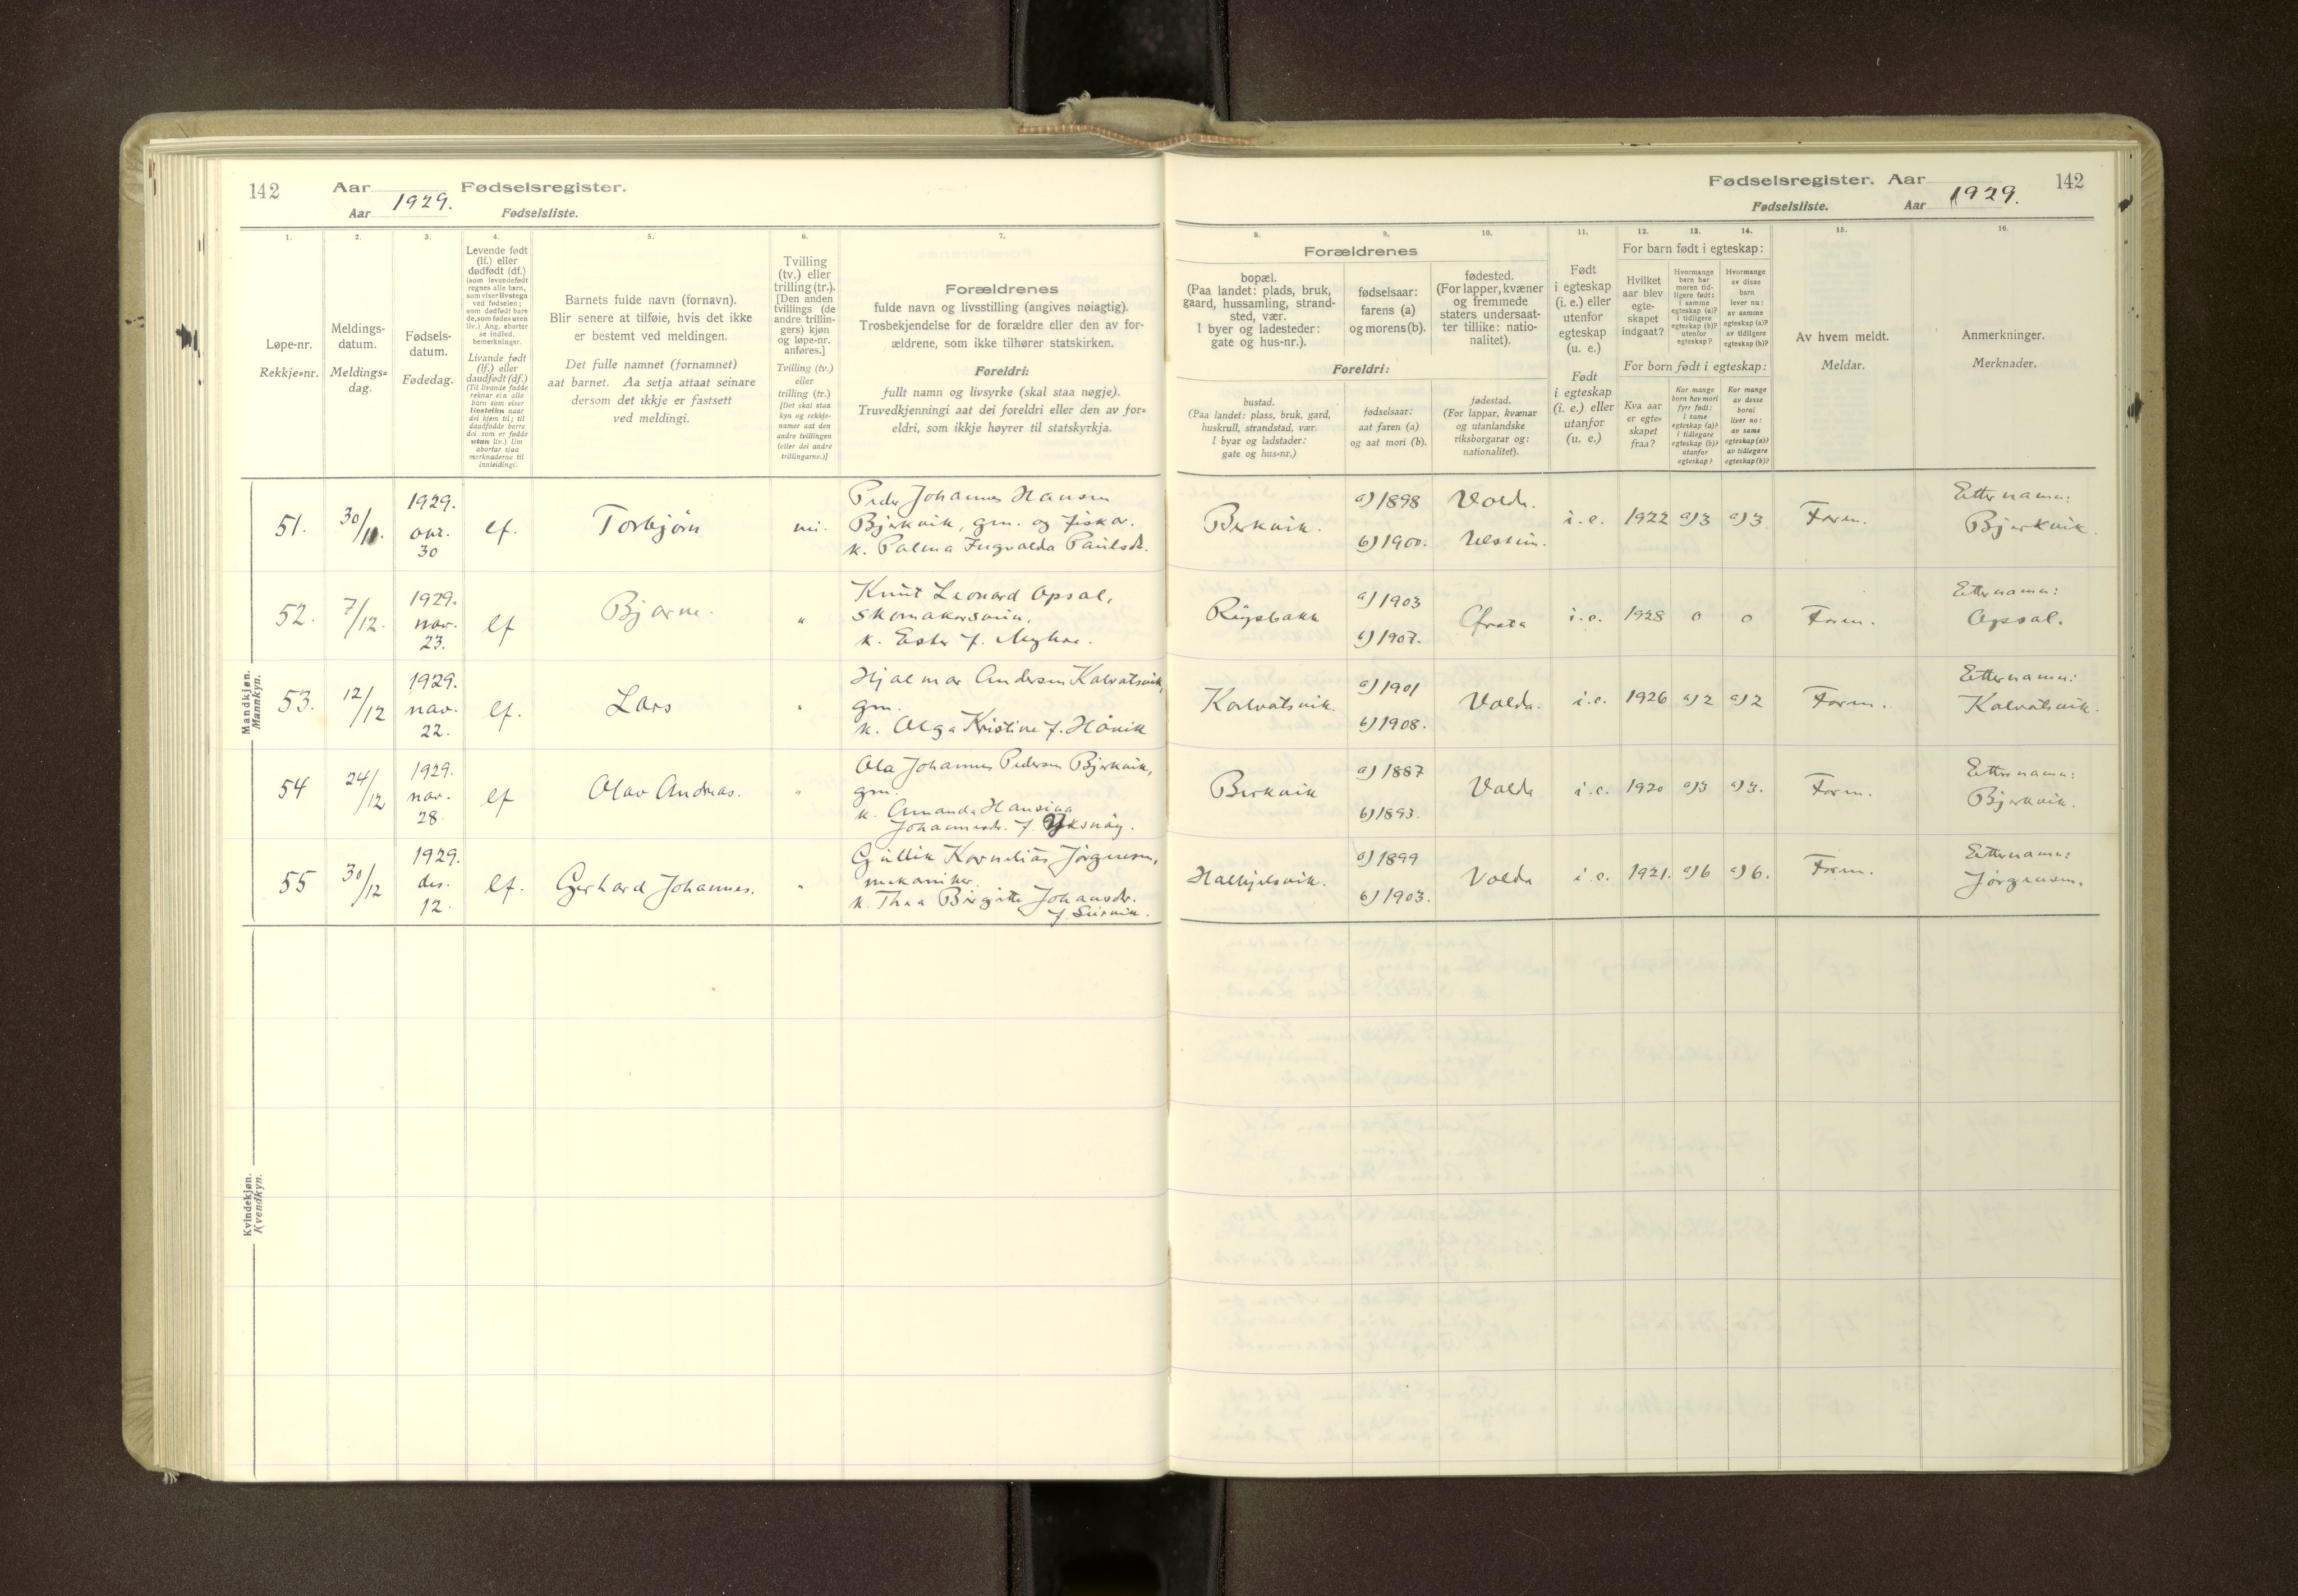 142 Aar 1929. Fødselsregister.
Aar Fødselsliste.
Fødselsregister. Aar 1929. 142
Fødselsliste. Aar
1. 2. 3. 4. 5. 6. 7.
Løpe-nr.
Rekkje=nr.
Meldings-
datum.
Meldings=
dag.
Fødsels-
datum.
Fødedag.
Levende født
(lf.) eller
dødfødt (df.)
(som levendefødt
regnes alle barn,
som viser livstegn
ved fødselen;
som dødfødt bare
de, som fødes uten
liv.) Ang. aborter
se indled.
bemerkninger.
Livande født
(lf.) eller
daudfødt (df.)
(Til livande fødde
reknar ein alle
barn som viser
livsteikn naar
dei kjem til; til
daudfødde berre
dei som er fødde
utan liv.) Um
abortar sjaa
merknaderne til
innleidingi.
Barnets fulde navn (fornavn).
Blir senere at tilføie, hvis det ikke
er bestemt ved meldingen.
Det fulle namnet (fornamnet)
aat barnet. Aa setja attaat seinare
dersom det ikkje er fastsett
ved meldingi.
Tvilling
(tv.) eller
trilling (tr.).
[Den anden
tvillings (de
andre trillin-
gers) kjøn
og løpe-nr.
anføres.]
Tvilling (tv.)
eller
trilling (tr.)
[Det skal staa
kyn og rekkje-
numer aat den
andre tvillingen
(eller dei andre
trillingarne.)]
Forældrenes
fulde navn og livsstilling (angives nøiagtig).
Trosbekjendelse for de forældre eller den av for-
ældrene, som ikke tilhører statskirken.
Foreldri:
fullt namn og livsyrke (skal staa nøgje).
Truvedkjenningi aat dei foreldri eller den av for=
eldri, som ikkje høyrer til statskyrkja.
8. 9. 10. 11. 12. 13. 14. 15. 16.
Forældrenes
bopæl.
(Paa landet: plads, bruk,
gaard, hussamling, strand-
sted, vær.
I byer og ladesteder:
gate og hus-nr.).
fødselsaar:
farens (a)
og morens (b).
fødested.
(For lapper, kvæner
og fremmede
staters undersaat-
ter tillike: natio-
nalitet).
Foreldri:
bustad.
(Paa landet: plass, bruk, gard,
huskrull, strandstad, vær.
I byar og ladstader:
gate og hus=nr.)
fødselsaar:
aat faren (a)
og aat mori (b).
fødestad.
(For lappar, kvænar
og utanlandske
riksborgarar og:
nationalitet).
Født
i egteskap
(i. e.) eller
utenfor
egteskap
(u. e.)
Født
i egteskap
(i. e.) eller
utanfor
(u. e.)
For barn født i egteskap:
Hvilket
aar blev
egte-
skapet
indgaat?
Hvormange
barn har
moren tid-
ligere født:
i samme
egteskap (a)?
i tidligere
egteskap (b)?
utenfor
egteskap?
Hvormange
av disse
barn
lever nu:
av samme
egteskap (a)?
av tidligere
egteskap (b)?
For barn født i egteskap:
Kva aar
er egte-
skapet
fraa?
Kor mange
born hev mori
fyrr født:
i same
egteskap (a)?
i tidlegare
egteskap (b)?
utanfor
egteskap?
Kor mange
av desse
borni
liver no:
av same
egteskap (a)?
av tidlegare
egteskap (b)?
Av hvem meldt.
Meldar.
Anmerkninger.
Merknader.
Mandkjøn.
Mannkyn.
51. 30/11. 1929. okt. 30 lf. Torbjørn nei. Peder Johannes Hansen
Bjerkvik, gm. og fiskar.
k. Palma Ingvalda Paulsdr.
Berkvik. a) 1898 b) 1900. Volda. Ulstein. i. e. 1922 a) 3 a) 3 Foren. Etternamn:
Bjerkvik.
52. 7/12. 1929. nov. 23. lf Bjarne. " Knut Leonard Opsal,
skomakarsvein,
k. Ester f. Myhre.
a) 1903 b) 1907. Ørsta i. e. 1928 0 0 Foren. Etternamn:
Opsal.
53. 12/12 1929. nov. 22. lf. Lars " Hjalmar Andersen Kalvatsvik,
gm.
k. Olga Kristine f. Håvik
Kalvatsvik. a) 1901 b) 1908. Volda. i. e. 1926 a) 2 a) 2 Foren. Etternamn:
Kalvatsvik.
54 24/12 1929. nov. 28. lf Olav Andreas. " Ola Johannes Pedersen Bjerkvik,
gm.
k. Amanda Hansina
Johannesdr. f. Yksnøy.
Berkvik a) 1887 b) 1893. Volda i. e. 1920 a) 3 a) 3. Foren. Etternamn:
Bjerkvik.
55 30/12 1929. des. 12. lf. Gerhard Johannes. " Gullik Kornelius Jørgensen,
mekaniker.
k. Thea Birgitte Johansdr.
Halkjelsvik. a) 1899 b) 1903. Volda i. e. 1921. a) 6 a) 6. Foren. Etternamn:
Jørgensen.
Kvindekjøn.
Kvendkyn.